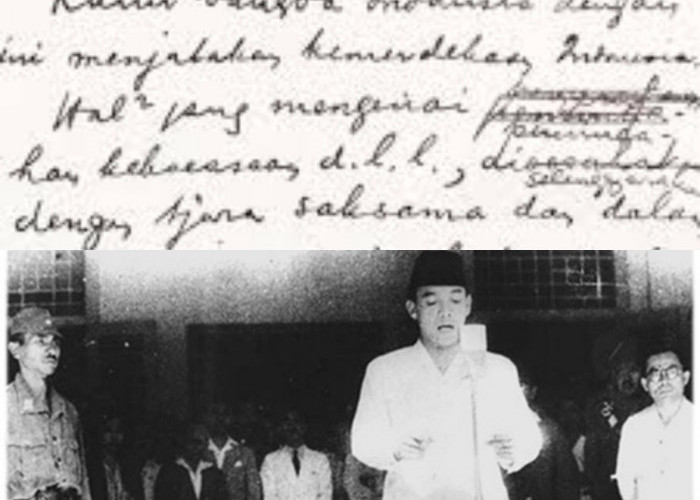 Kami bangsa Indonesia dengan
ini menjatakan kemerdekaan Indonesia.
Hal² jang mengenai
peminda-
han kekoeasaan d.l.l., dioesahakan
selenggarakan
dengan tjara saksama dan dalam